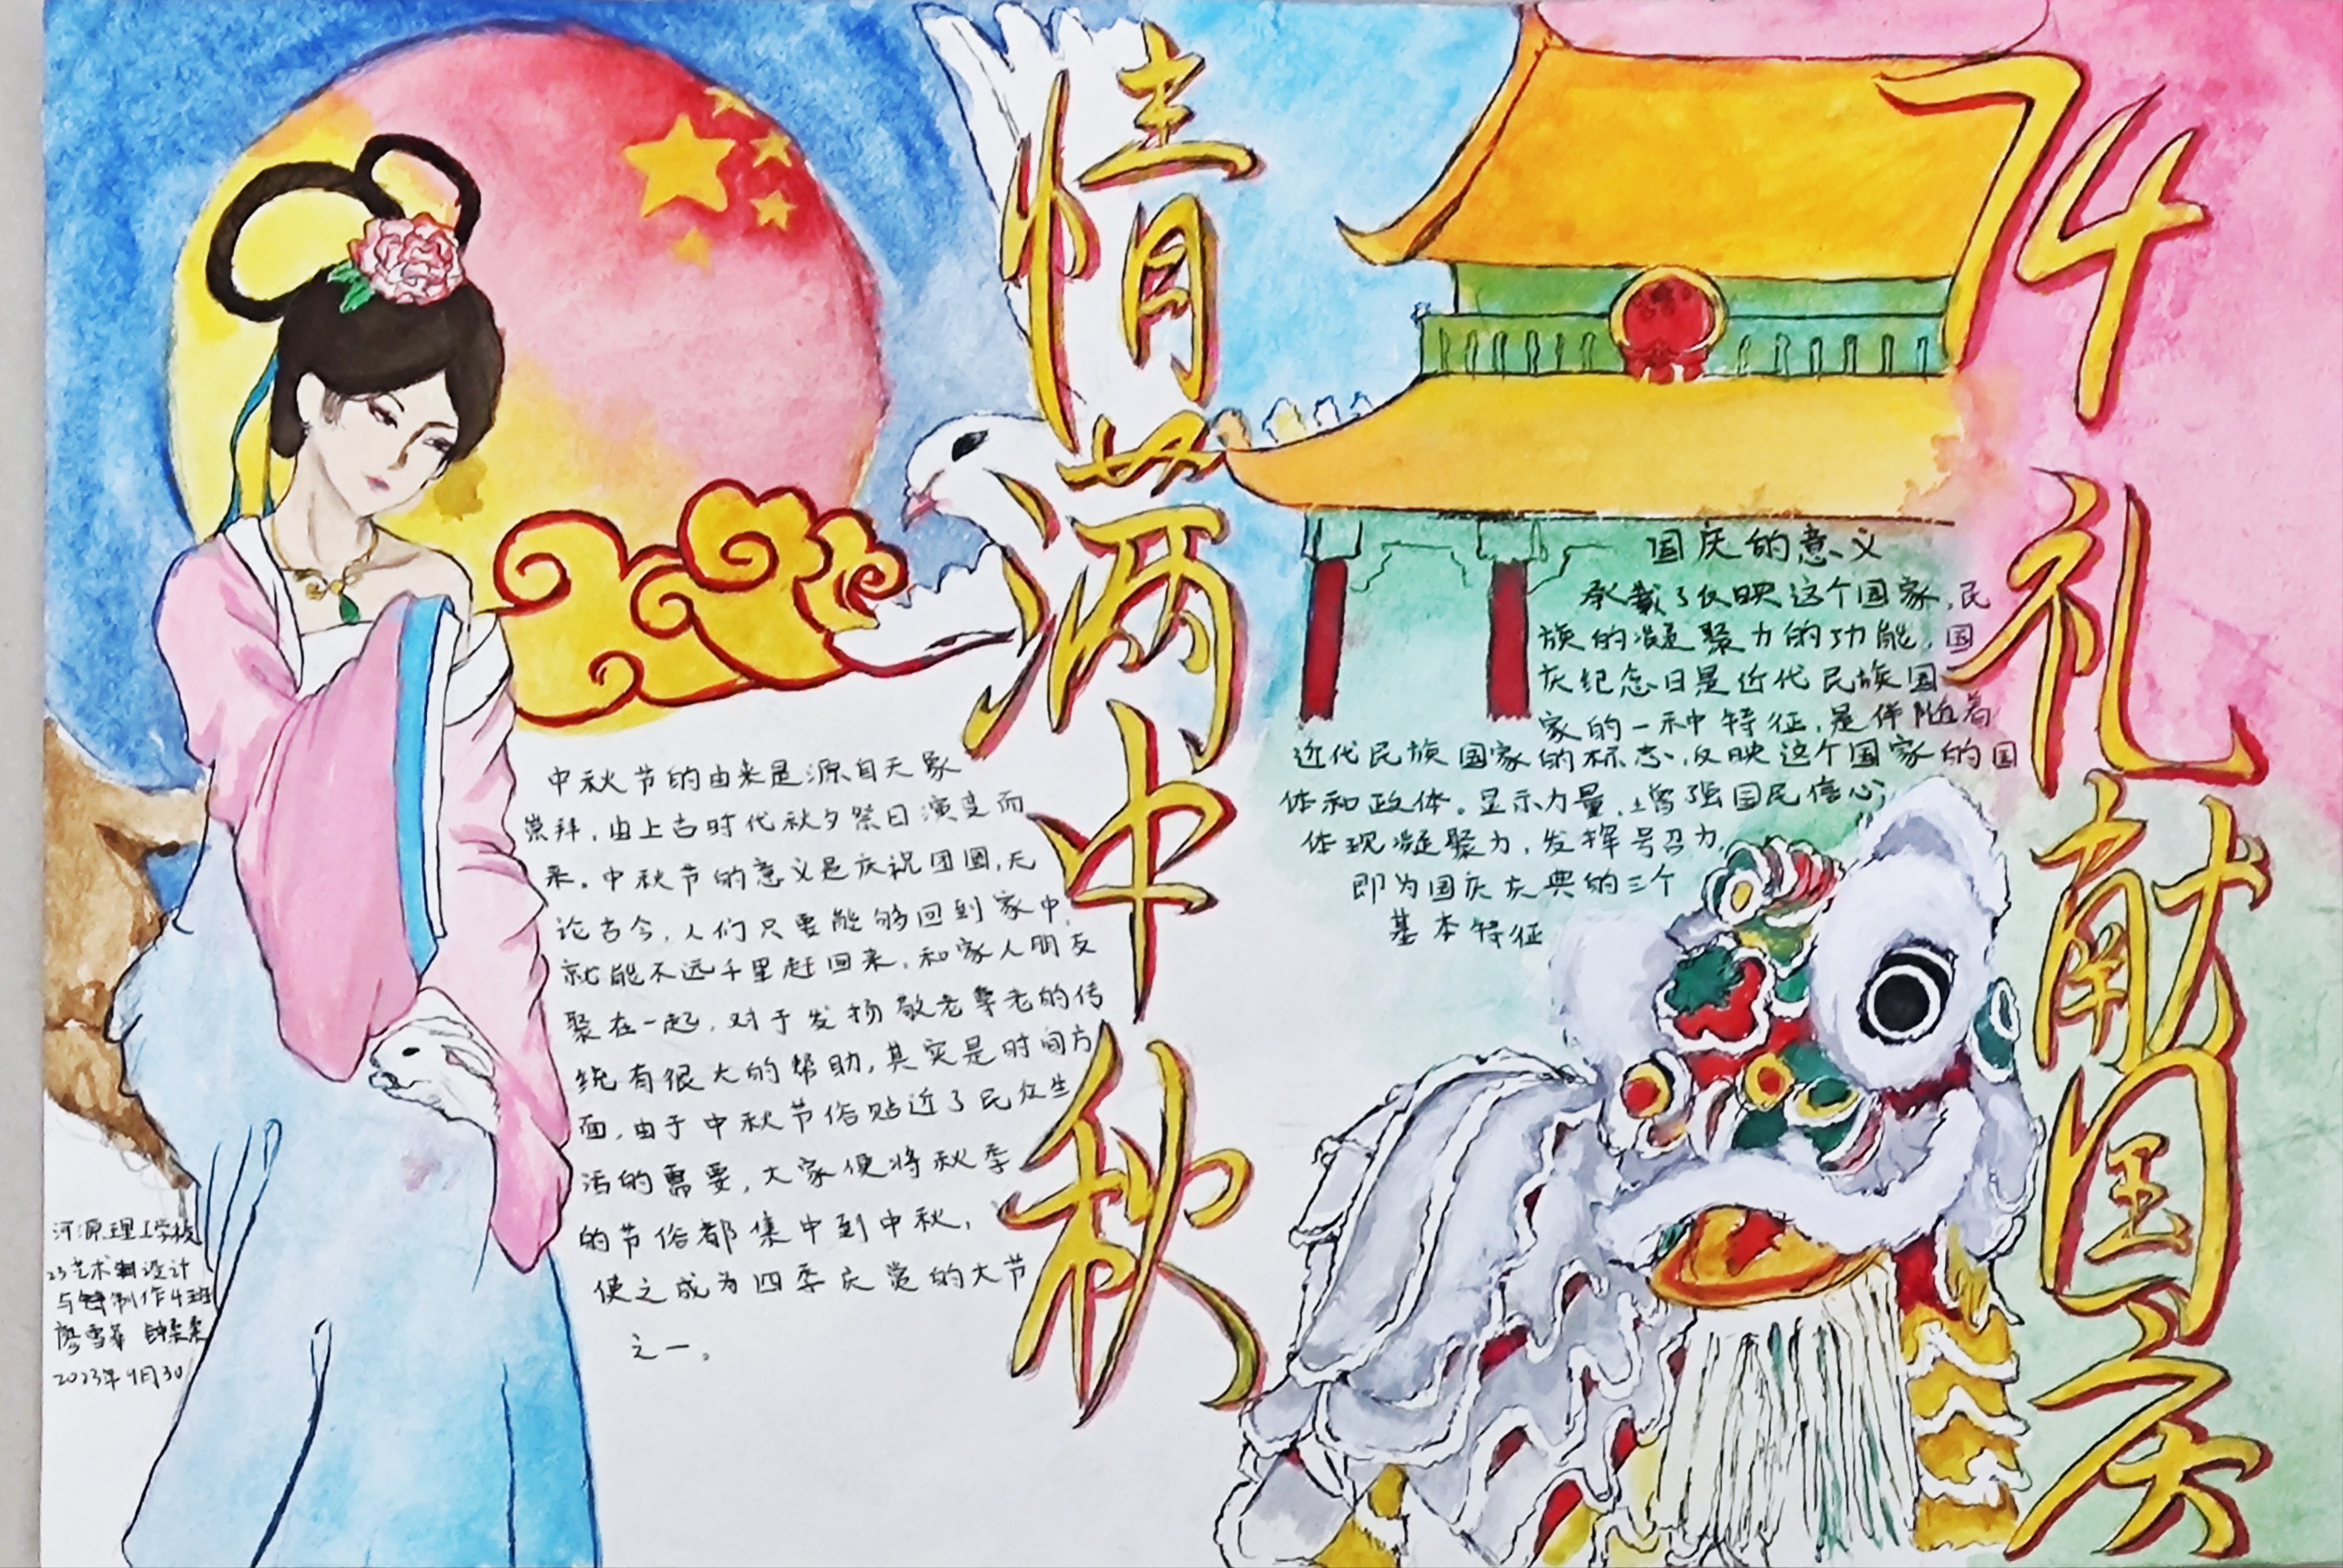 情满中秋
74礼献国庆
中秋节的由来是源自天象
崇拜,由上古时代秋夕祭日演变而
来。中秋节的意义是庆祝团圆,无
论古今,人们只要能够回到家中,
就能不远千里赶回来,和家人朋友
聚在一起,对于发扬敬老尊老的传
统有很大的帮助,其实是时间方
面,由于中秋节俗贴近了民众生
活的需要,大家便将秋季
的节俗都集中到中秋,
使之成为四季庆赏的大节
之一。
国庆的意义
承载了反映这个国家,民
族的凝聚力的功能,国
庆纪念日是近代民族国
家的一种特征,是伴随着
近代民族国家的标志,反映这个国家的国
体和政体。显示力量,增强国民信心,
体现凝聚力,发挥号召力,
即为国庆庆典的三个
基本特征
河源理工学校
23艺术设计
与制作4班
廖雪 钟柔柔
2023年9月30